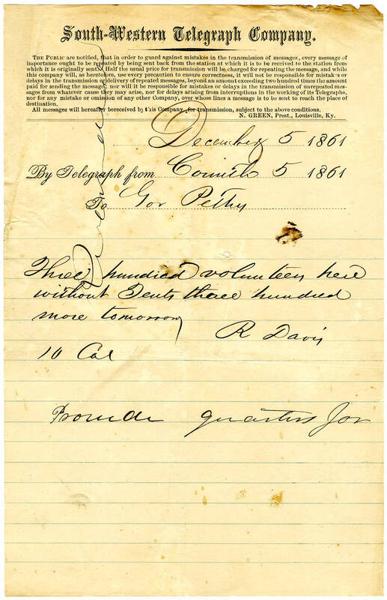 South-Western Telegraph Company.
THE PUBLIC are notified, that in order to guard against mistakes in the transmission of messages, every message of
importance ought to be repeated by being sent back from the station at which it is to be received to the station from
which it is originally sent. Half the usual price for transmission will be charged for repeating the message, and while
this company will, as heretofore, use every precaution to ensure correctness, it will not be responsible for mistakes or
delays in the transmission or delivery of repeated messages, beyond an amount exceeding two hundred times the amount
paid for sending the message; nor will it be responsible for mistakes or delays in the transmission of unrepeated messages
from whatever cause they may arise, nor for delays arising from interruptions in the working of its Telegraphs,
nor for any mistake or omission of any other Company, over whose lines a message is to be sent to reach the place of
destination.
All messages will hereafter be received by this Company, for transmission, subject to the above conditions.
N. GREEN, Prest., Louisville, Ky.
December 5 1861
By Telegraph from Corinth 5 1861
To Gov Pettus
Three hundred volunteers here
without Tents three hundred
more tomorrow
R Davis
10 Col
Provide quarters for